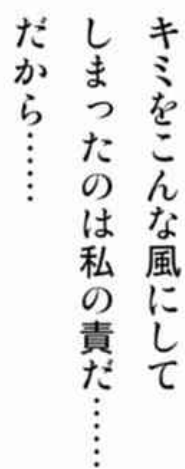 キミをこんな風にして
しまったのは私の責だ……
だから……